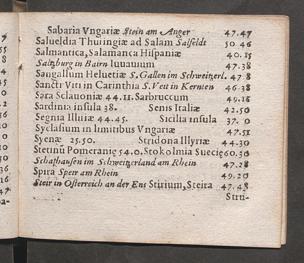 Sabaria Vngariæ Stein am Anger 47.47
Salueldia Thuringiæ ad Salam Salfeldt 50.46
Salmantica, Salamanca Hispaniæ 40.15
Saltzburg in Bairn Iuuauium 47.38
Sangallum Helvetiæ S. Gallen im Schweitzerl. 47 8
Sancti Viti in Carinthia S. Veit in Kernten 46.38
Sara Sclauoniæ 44.11. Sarbruccum 49.18
Sardinia insula 38. Senis Italiæ 42.50
Segnia Illiriæ 44.45. Sicilia insula 37. 0
Syclasium in limitibus Vngariæ 47.51
Syenæ 25.50. Stridona Illyriæ 44.30
Stetinū Pomeranię 54.0. Stokolmia Suecię 60.30
Schafhausen im Schweitzerland am Rhein 47.28
Spira Speir am Rhein 49.20
Steir in Osterreich an der Ens Stirium, Steira 47.48
Stru-